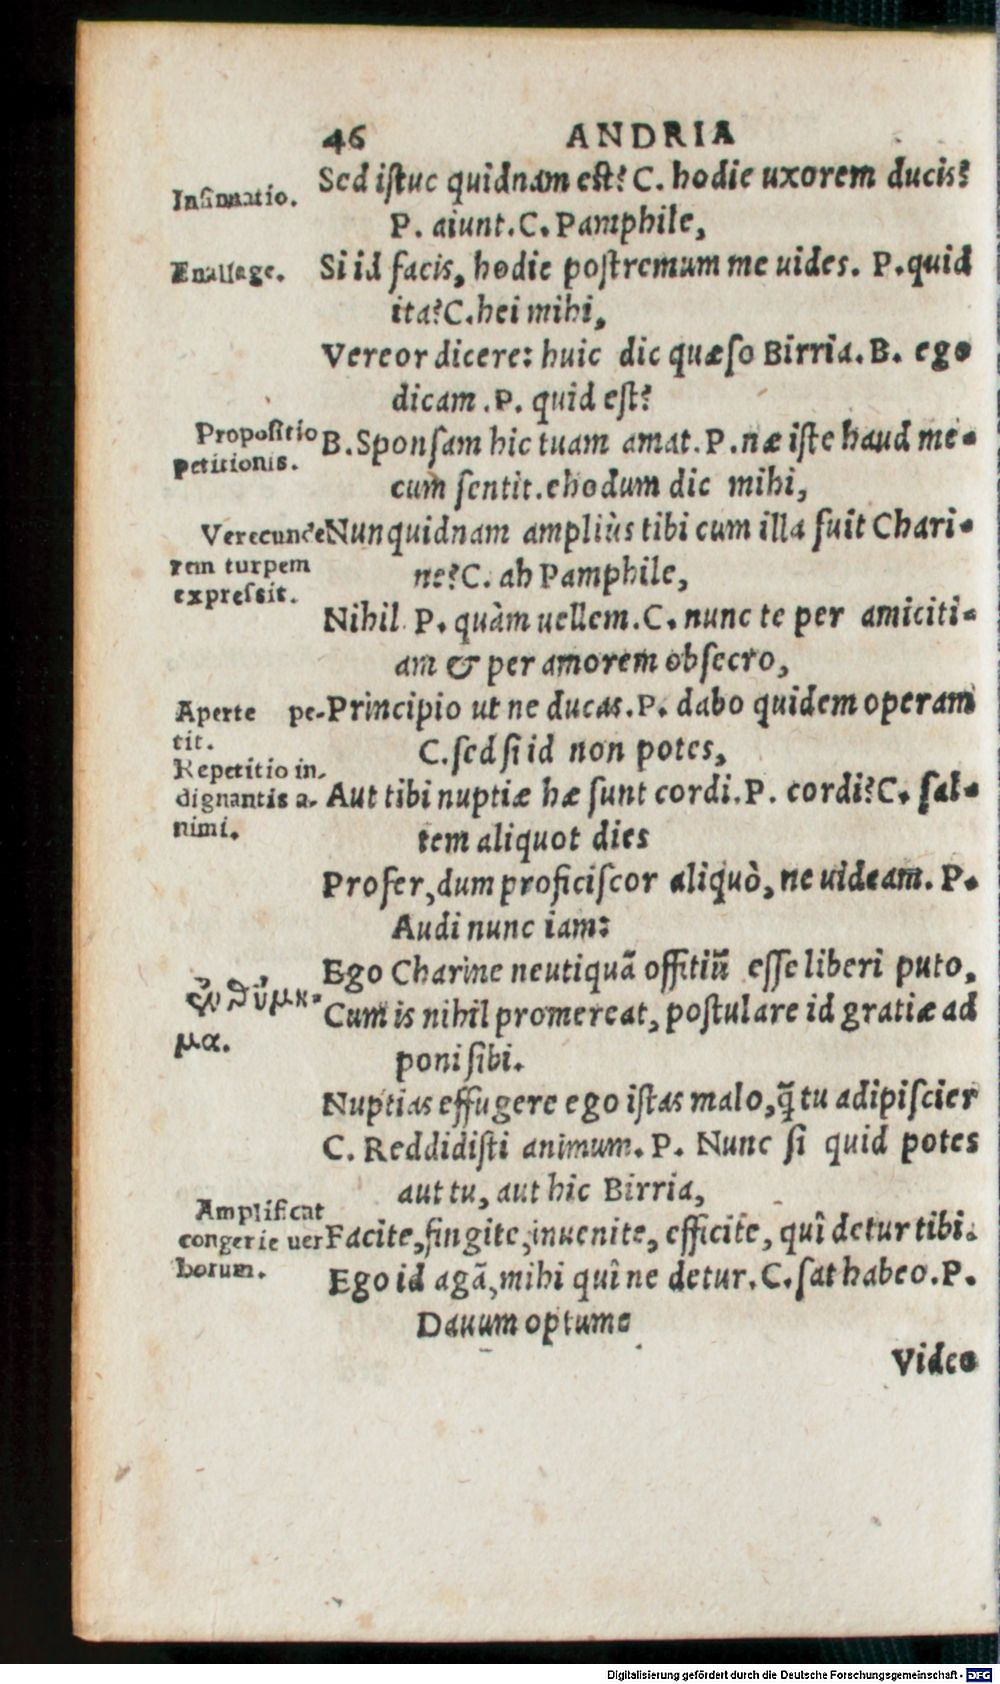 46 ANDRIA
Insinuatio.
Sed istuc quidnam est? C. hodie uxorem ducis?
P. aiunt. C. Pamphile,
Enallage.
Si id facis, hodie postremum me uides. P. quid
ita? C. hei mihi,
Vereor dicere: huic dic quæso Birria. B. ego
dicam. P. quid est?
Propositio
petitionis.
B. Sponsam hic tuam amat. P. næ iste haud me-
cum sentit. ehodum dic mihi,
Verecundè
rem turpem
expressit.
Nunquidnam ampliùs tibi cum illa fuit Chari-
ne? C. ah Pamphile,
Nihil P. quàm uellem. C. nunc te per amiciti-
am & per amorem obsecro,
Aperte pe-
tit.
Principio ut ne ducas. P. dabo quidem operam
C. sed si id non potes,
Repetitio in-
dignantis a-
nimi.
Aut tibi nuptiæ hæ sunt cordi. P. cordi? C. sal-
tem aliquot dies
Profer, dum proficiscor aliquò, ne uideam. P.
Audi nunc iam:
Ego Charine neutiquã offitiũ esse liberi puto,
ἐνθύμη-
μα.
Cum is nihil promereat, postulare id gratiæ ad
poni sibi.
Nuptias effugere ego istas malo, q̃ tu adipiscier
C. Reddidisti animum. P. Nunc si quid potes
aut tu, aut hic Birria,
Amplificat
congerie uer
borum.
Facite, fingite, inuenite, efficite, quî detur tibi.
Ego id agã, mihi quî ne detur. C. sat habeo. P.
Dauum optume
Video
Digitalisierung gefördert durch die Deutsche Forschungsgemeinschaft - DFG